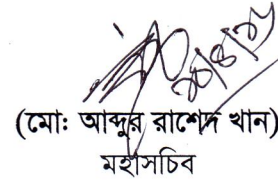 (মোঃ আব্দুর রাশেদ খান)
মহাসচিব